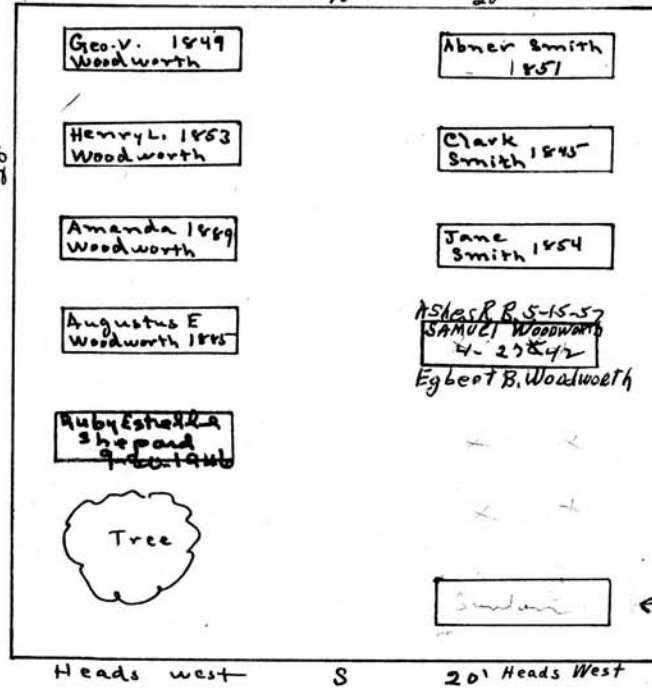 20
20
Geo. V. 1849
Woodworth
Henry L. 1853
Woodworth
Amanda 1889
Woodworth
Augustus E
Woodworth 1885
Ruby Estrella
Shepard
9-20-1946
Tree
Abner Smith
1851
Clark
Smith 1845
Jane
Smith 1854
Ashes R.B. 5-15-57
SAMUEL WOODWORTH
Egbert B. Woodworth
Heads west
S
20' Heads West